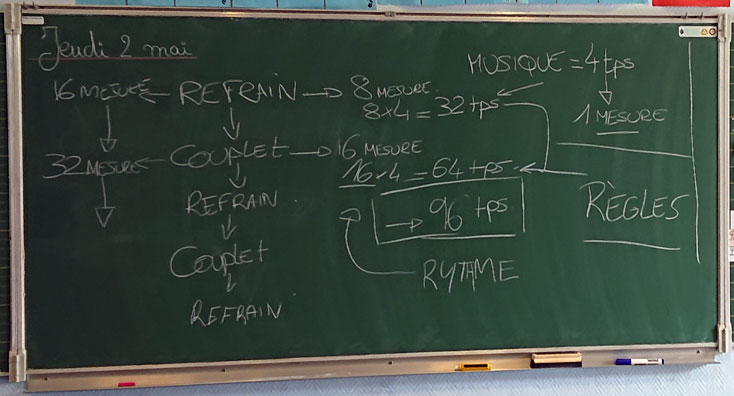 Jeudi 2 mai
MUSIQUE = 4 tps
16 MESURE ← REFRAIN → 8 MESURE
8×4 = 32 tps
1 MESURE
32 MESURE ← COUPLET → 16 MESURE
16×4 = 64 tps
REFRAIN
→ 96 tps
RÈGLES
Couplet
RYTHME
REFRAIN